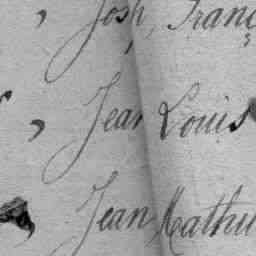 , Josh, Franç
, Jean Louis
, Jean Mathu